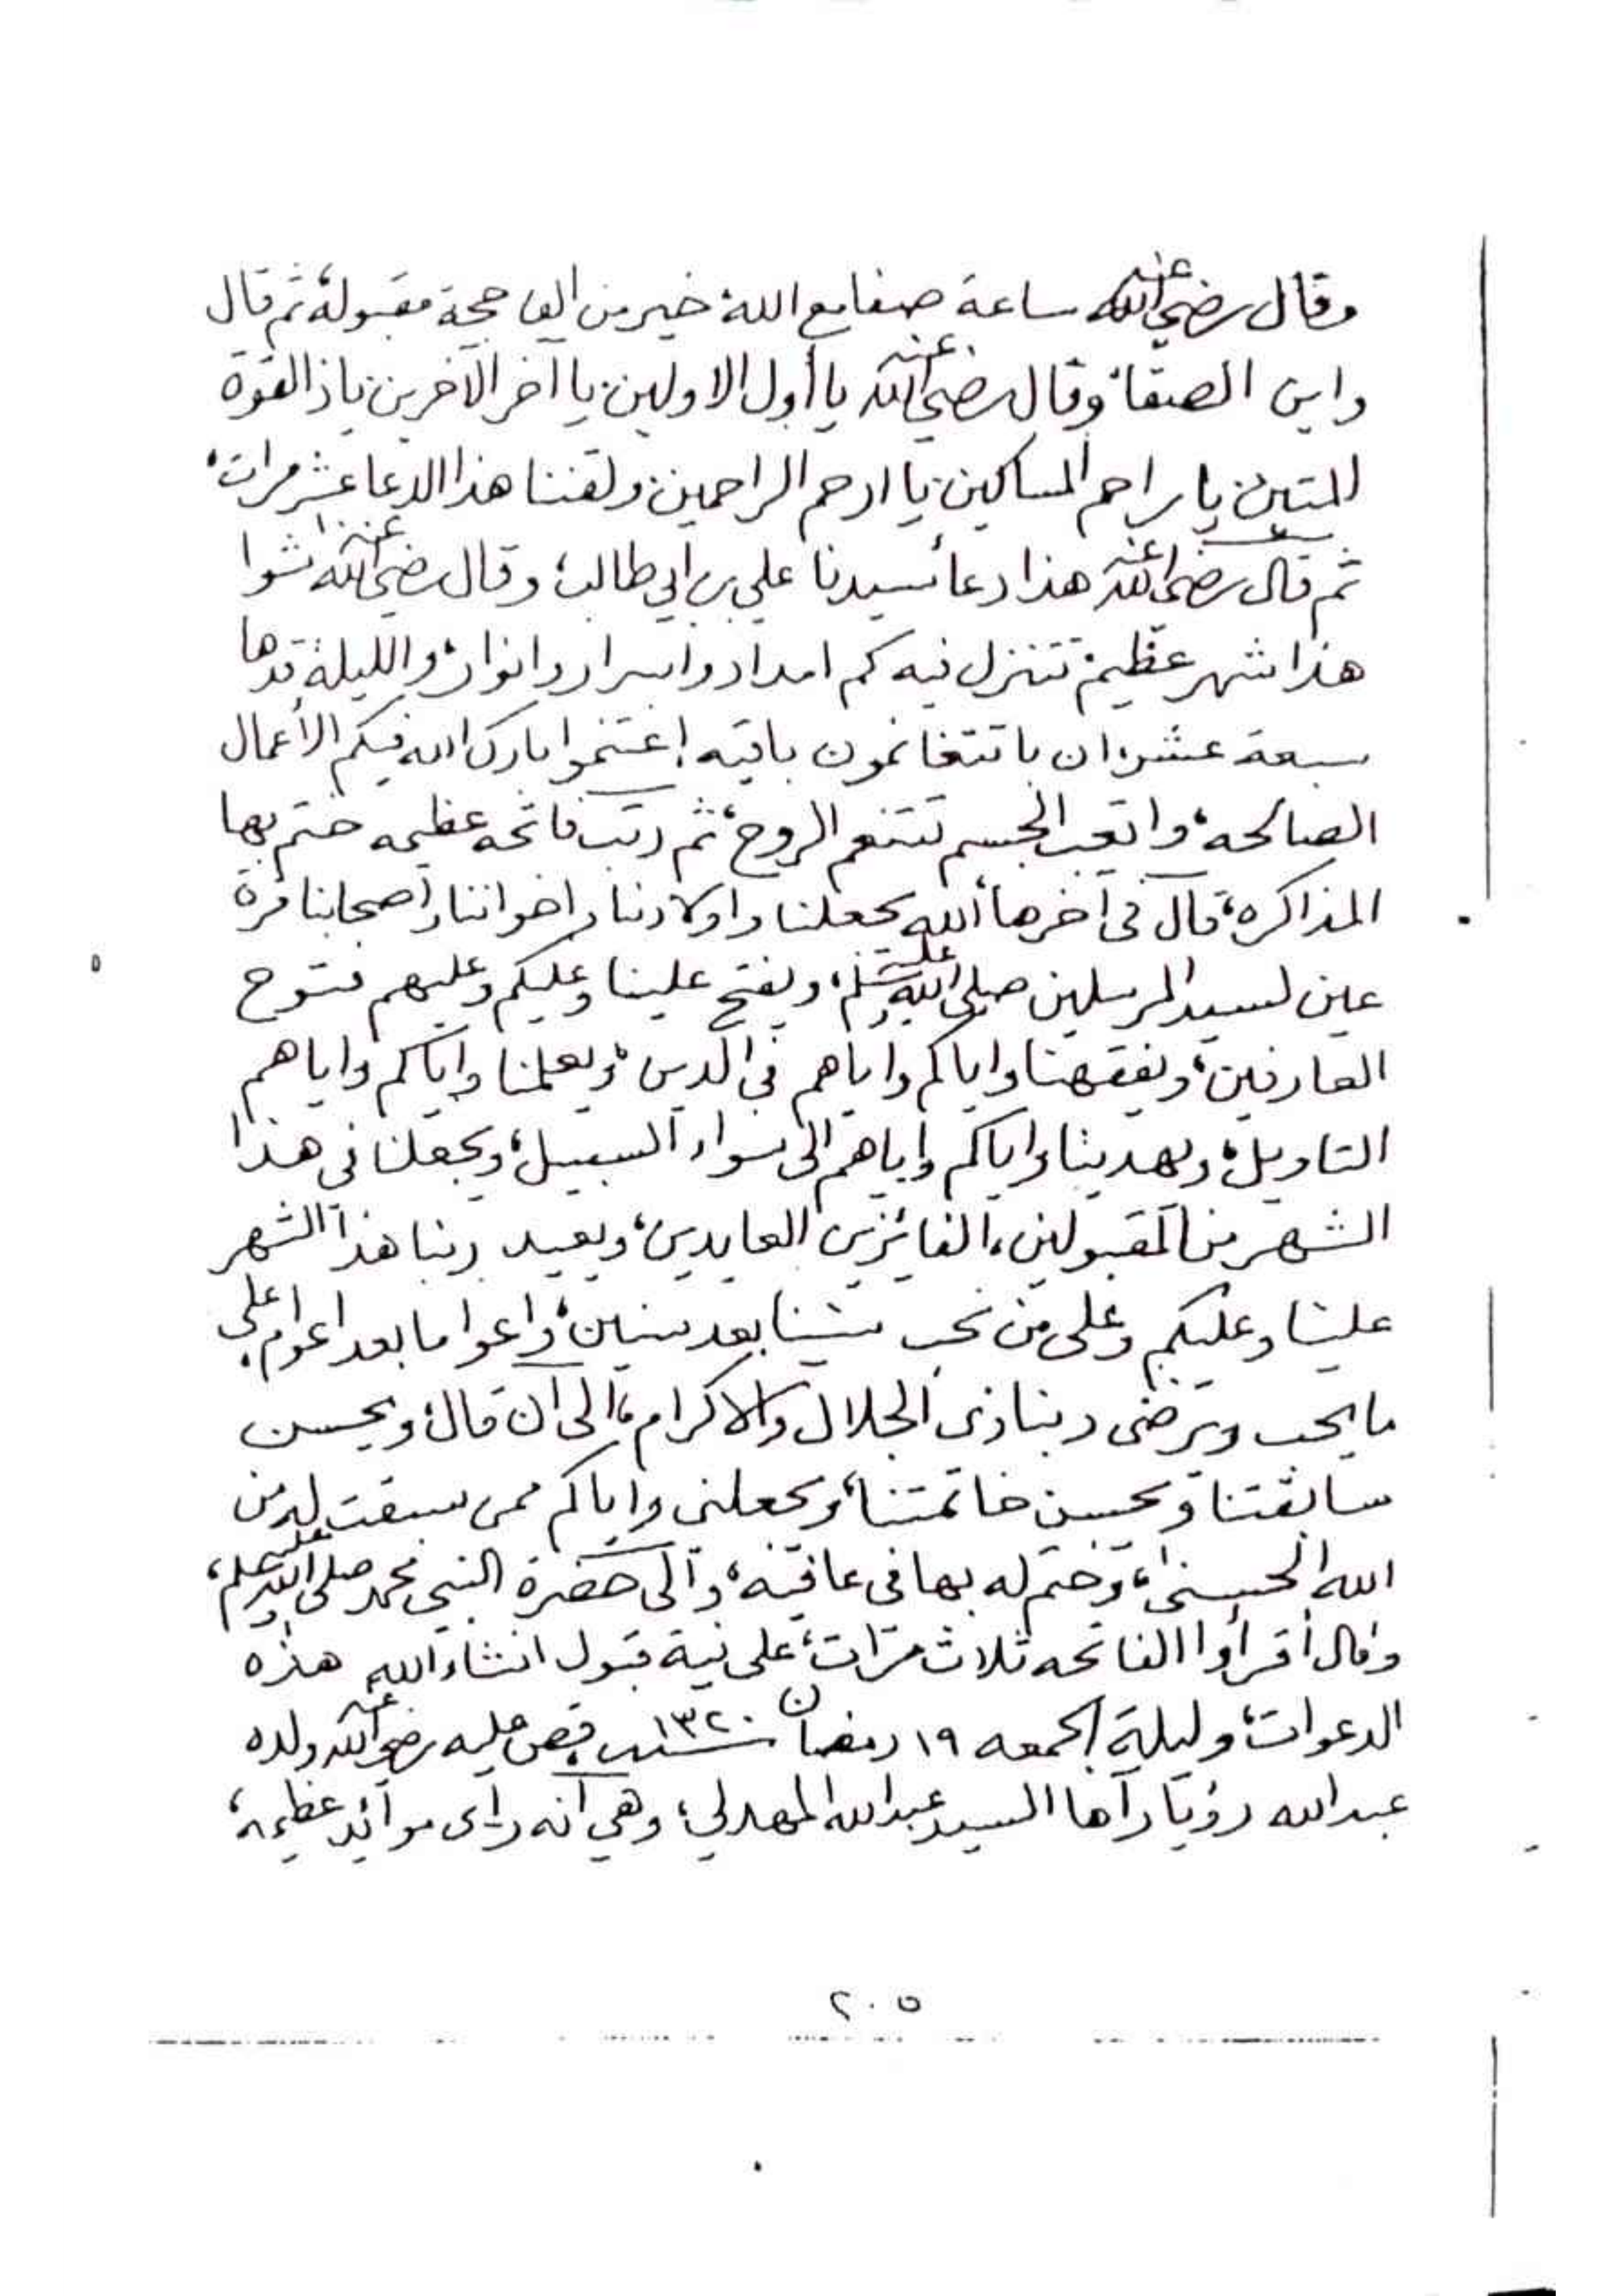 وقال رضي الله عنه ساعة صفا مع الله، خير من الف حجة مقبولة، ثم قال
واين الصفا، وقال رضي الله عنه يا أول الاولين، يا آخر الآخرين، ياذا القوة
المتين، يا راحم المساكين، يا ارحم الراحمين، ولقننا هذا الدعا عشر مرات،
ثم قال رضي الله عنه هذا دعا سيدنا علي بن ابي طالب، وقال رضي الله عنه شوا
هذا شهر عظيم، تتنزل فيه كم امداد واسرار وانوار، والليلة قدها
سبعة عشر، ان با تتغانمون باقيه إغتنموا بارك الله فيكم الأعمال
الصالحه، واتعب الجسم تتنعم الروح، ثم رتب فاتحه عظيمه ختم بها
المذاكره، قال في آخرها ألله يجعلنا واولادنا واخواننا واصحابنا قرة
عين لسيد المرسلين صلى الله عليه وسلم، ويفتح علينا وعليكم وعليهم فتوح
العارفين، ويفقهنا واياكم واياهم في الدين، ويعلمنا واياكم واياهم
التاويل، ويهدينا واياكم واياهم الى سواء السبيل، ويجعلنا في هذا
الشهر من المقبولين، الفائزين العايدين، ويعيد ربنا هذا الشهر
علينا وعليكم وعلى من نحب سنينا بعد سنين، واعواما بعد اعوام، على
ما يحب ويرضى ربنا ذي الجلال والاكرام، الى آن قال، ويحسن
سابقتنا ويحسن خاتمتنا، ويجعلني واياكم ممن سبقت له من
الله الحسنى، وختم له بها في عافيه، وآلى حضرة النبي محمد صلى الله عليه وسلم،
وقال أقرأوا الفاتحه ثلاث مرات، على نية قبول انشاء الله هذه
الدعوات، وليلة الجمعه ١٩ رمضان سنة ١٣٢٠ قص عليه رضي الله عنه ولده
عبد الله رؤيا رآها السيد عبد الله المهدلي، وهي آنه رأى موآئد عظيمه،
٢٠٥